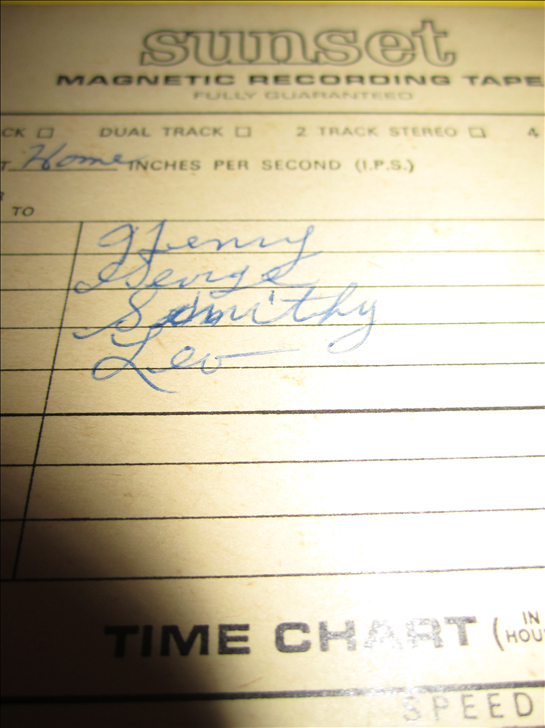 sunset
MAGNETIC RECORDING TAPE
FULLY GUARANTEED
CK □ DUAL TRACK □ 2 TRACK STEREO □ 4
T Home INCHES PER SECOND (I.P.S.)
TO
Henry
George
Smithy
Leo
TIME CHART (IN
HOU
SPEED